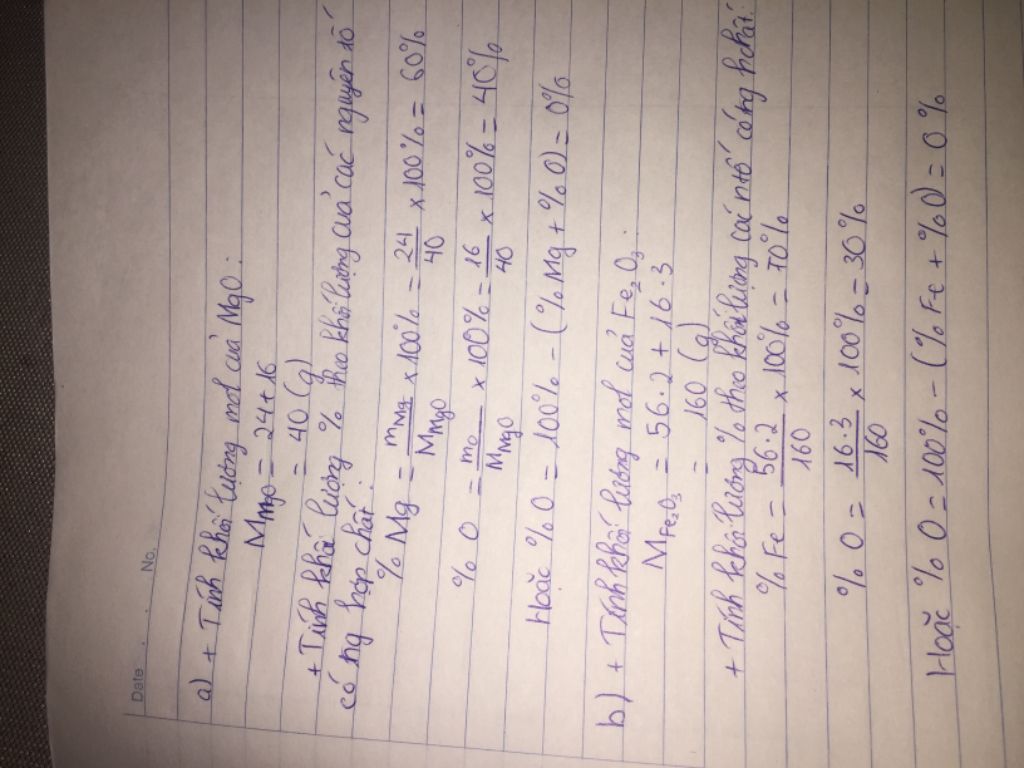 Date . . No.
a) + Tính khối lượng mol của MgO:
M_MgO = 24 + 16
= 40 (g)
+ Tính khối lượng % theo khối lượng của các nguyên tố
có ng hợp chất:
% Mg = m_Mg / M_MgO x 100% = 24/40 x 100% = 60%
% O = m_O / M_MgO x 100% = 16/40 x 100% = 40%
Hoặc % O = 100% - (% Mg + % O) = 0%
b) + Tính khối lượng mol của Fe₂O₃
M_Fe₂O₃ = 56.2 + 16.3
= 160 (g)
+ Tính khối lượng % tho khối lượng cá ntố có ng hchất:
% Fe = 56.2/160 x 100% = 70%
% O = 16.3/160 x 100% = 30%
Hoặc % O = 100% - (% Fe + % O) = 0%